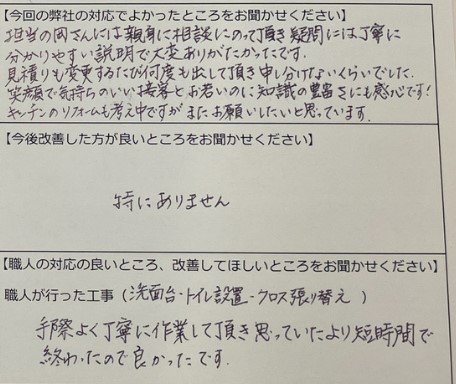 【今回の弊社の対応でよかったところをお聞かせください】
担当の岡さんには親身に相談にのって頂き疑問には丁寧に
分かりやすい説明で大変ありがたかったです。
見積りも変更するたび何度も出して頂き申し分けないくらいでした。
笑顔で気持ちのいい接客とお若いのに知識の豊富さにも感心です!
キッチンのリフォームも考え中ですがまたお願いしたいと思っています。
【今後改善した方が良いところをお聞かせください】
特にありません
【職人の対応の良いところ、改善してほしいところをお聞かせください】
職人が行った工事(洗面台・トイレ設置・クロス張り替え)
手際よく丁寧に作業して頂き思っていたより短時間で
終わったので良かったです。